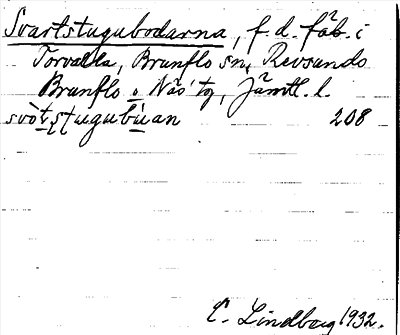 Svartstugubodarna, f. d. fäb. i
Torvalla, Brunflo sn, Revsunds
Brunflo o. Näs' tg, Jämtl. l.
svòt̠ʂʈugubu̠an 208
C. Lindberg 1932.